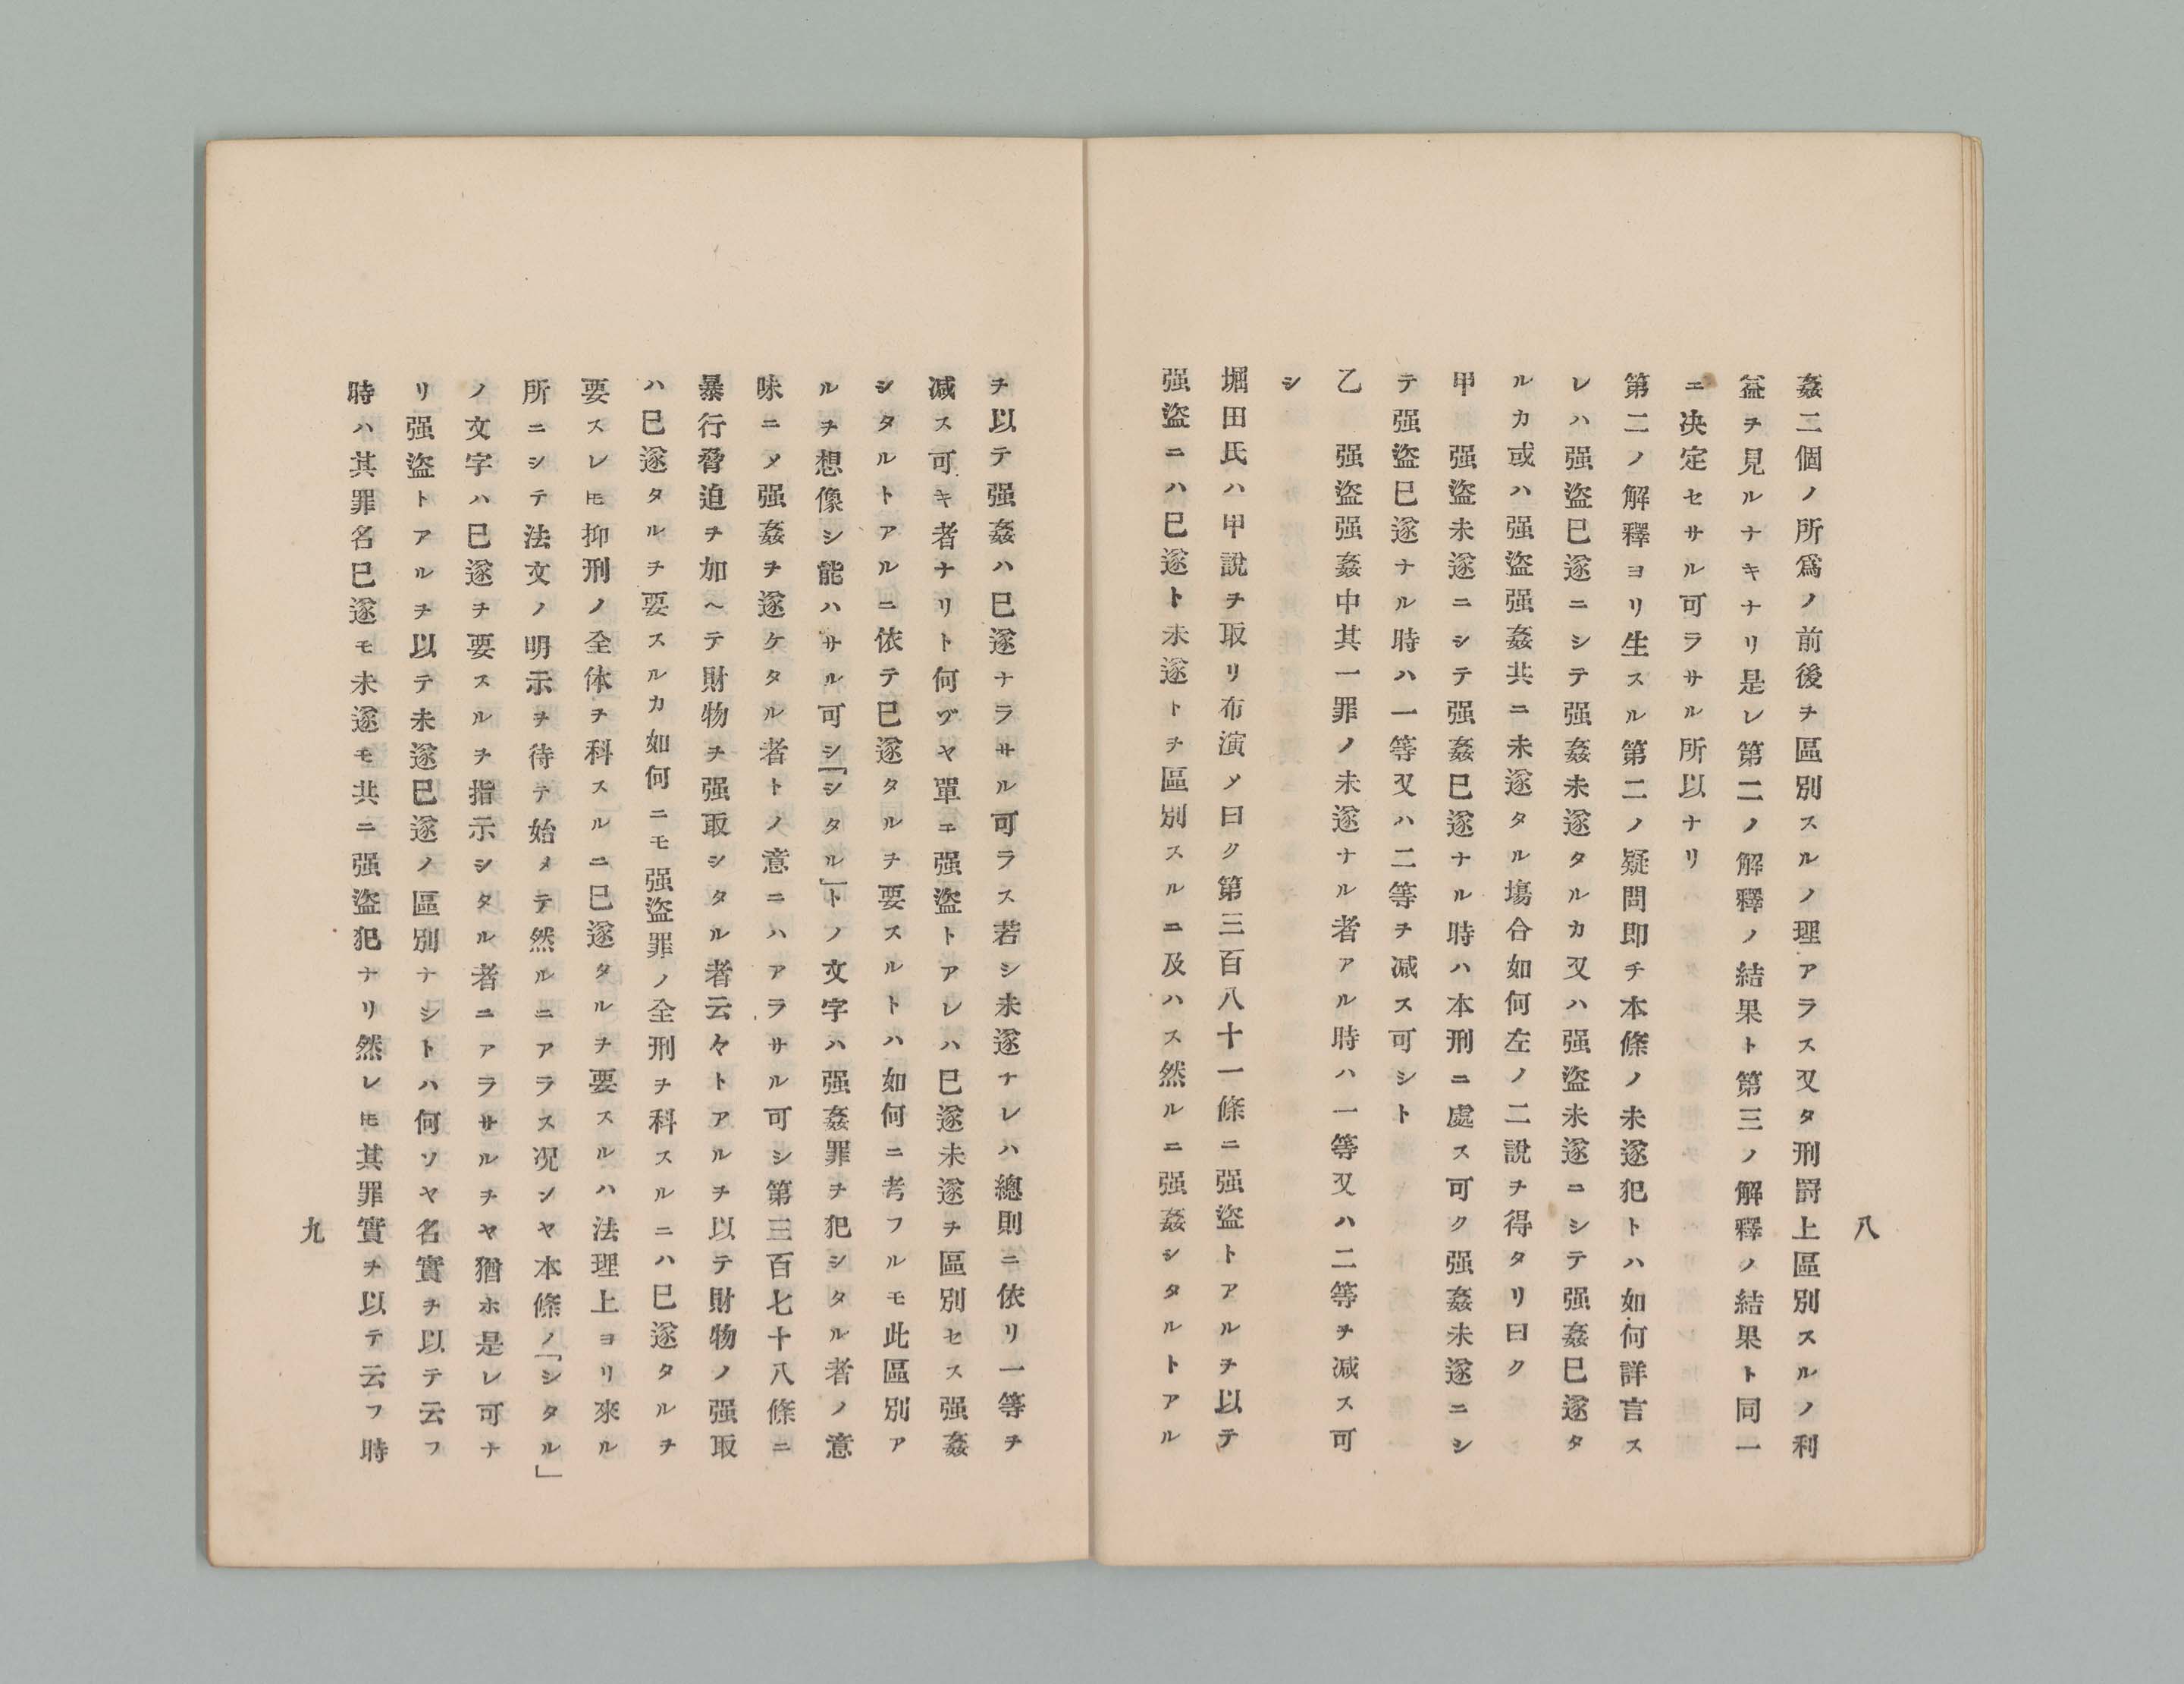 八
姦二個ノ所爲ノ前後ヲ區別スルノ理アラス又タ刑罸上區別スルノ利
益ヲ見ルナキナリ是レ第二ノ解釋ノ結果ト第三ノ解釋ノ結果ト同一
ニ决定セサル可ラサル所以ナリ
第二ノ解釋ヨリ生スル第二ノ疑問即チ本條ノ未遂犯トハ如何詳言ス
レハ强盜已遂ニシテ强姦未遂タルカ又ハ强盜未遂ニシテ强姦已遂タ
ルカ或ハ强盜强姦共ニ未遂タル塲合如何左ノ二說ヲ得タリ曰ク
甲　强盜未遂ニシテ强姦已遂ナル時ハ本刑ニ處ス可ク强姦未遂ニシ
テ强盜已遂ナル時ハ一等又ハ二等ヲ减ス可シト
乙　强盜强姦中其一罪ノ未遂ナル者アル時ハ一等又ハ二等ヲ减ス可
シ
堀田氏ハ甲說ヲ取リ布演メ曰ク第三百八十一條ニ强盜トアルヲ以テ
强盜ニハ已遂ト未遂トヲ區別スルニ及ハス然ルニ强姦シタルトアル
ヲ以テ强姦ハ已遂ナラサル可ラス若シ未遂ナレハ總則ニ依リ一等ヲ
减ス可キ者ナリト何ヅヤ單ニ强盜トアレハ已遂未遂ヲ區別セス强姦
シタルトアルニ依テ已遂タルヲ要スルトハ如何ニ考フルモ此區別ア
ルヲ想像シ能ハサル可シ「シタル」トノ文字ハ强姦罪ヲ犯シタル者ノ意
味ニメ强姦ヲ遂ケタル者トノ意ニハアラサル可シ第三百七十八條ニ
暴行脅迫ヲ加ヘテ財物ヲ强取シタル者云々トアルヲ以テ財物ノ强取
ハ已遂タルヲ要スルカ如何ニモ强盜罪ノ全刑ヲ科スルニハ已遂タルヲ
要スレ𪜈抑刑ノ全体ヲ科スルニ已遂タルヲ要スルハ法理上ヨリ來ル
所ニシテ法文ノ明示ヲ待テ始メテ然ルニアラス况ンヤ本條ノ「シタル」
ノ文字ハ已遂ヲ要スルヲ指示シタル者ニアラサルヲヤ猶ホ是レ可ナ
リ强盜トアルヲ以テ未遂已遂ノ區別ナシトハ何ソヤ名實ヲ以テ云フ
時ハ其罪名已遂モ未遂モ共ニ强盜犯ナリ然レ𪜈其罪實ヲ以テ云フ時
九